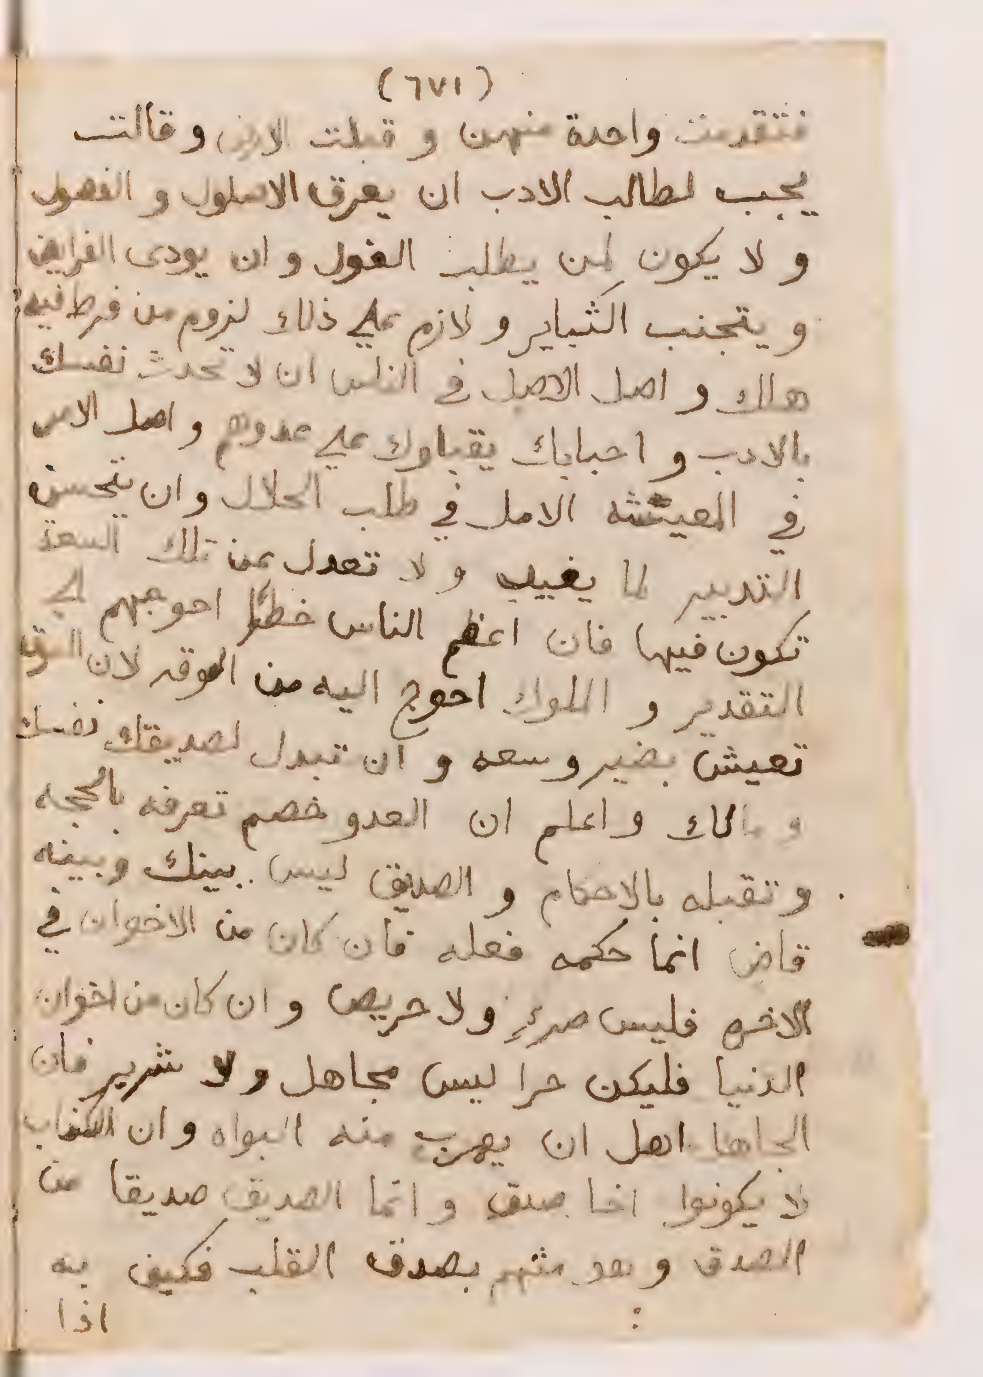 (٦٧١)
فتقدمت واحدة منهن و قبلت الارض و قالت
يجب لطالب الادب ان يعرف الاصلول و الفصول
و لا يكون لمن يطلب الفول و ان يودى الفرايض
و يتجنب الكباير و لازم على ذلك لزوم من فرط فيه
هالك و اصل الاصل في الناس ان لا تحدث نفسك
بالادب و احبابك يقبلوك على عدوهم و اصل الامر
في المعيشه الامل في طلب الحلال و ان يتحسن
التدبير لما يغيب و لا تعدل عن تلك السعة
تكون فيها فان اعظم الناس خطئا احوجهم الى
التقدير و الملوك احوج اليه من الموقه لان
تعيش بضير وسعه و ان تبدل لصديقك نفسك
و مالك و اعلم ان العدو خصم تعرفه بالحجه
و تقبله بالاحكام و الصديق ليس بينك وبينه
قاض انما حكمه فعله فان كان من الاخوان في
الاخره فليس مرء ولا حريص و ان كان من اخوان
الدنيا فليكن حرا ليس مجاهل ولا شرير فان
الجاهل اهل ان يهرب منه ابواه و ان الكذاب
لا يكونوا اخا صدق و انما الصديق صديقا من
الصدق و بعد منهم بصدق القلب فكيف به
اذا